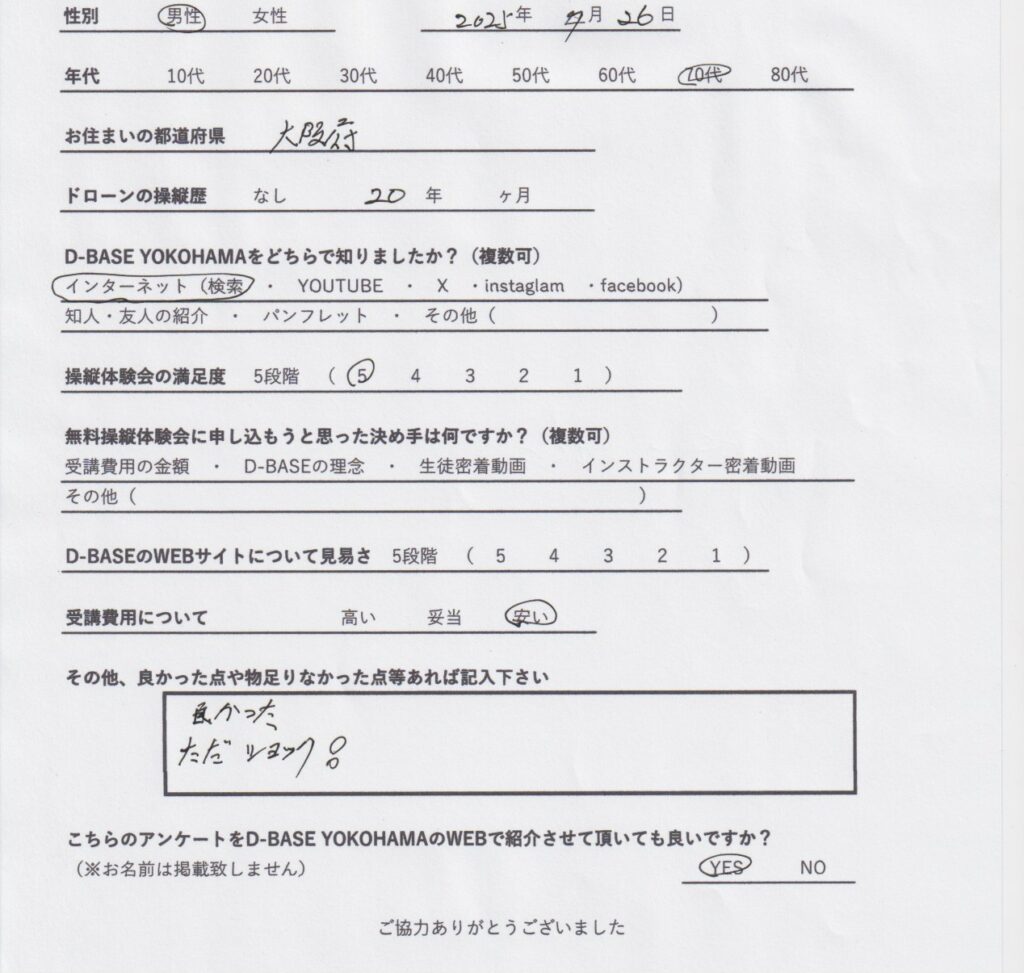 性別 男性 女性 2025年 7月 26日
年代 10代 20代 30代 40代 50代 60代 70代 80代
お住まいの都道府県 大阪府
ドローンの操縦歴 なし 20 年 ヶ月
D-BASE YOKOHAMAをどちらで知りましたか？（複数可）
インターネット（検索 ・ YOUTUBE ・ X ・instaglam ・facebook）
知人・友人の紹介 ・ パンフレット ・ その他（ ）
操縦体験会の満足度 5段階 （ 5 4 3 2 1 ）
無料操縦体験会に申し込もうと思った決め手は何ですか？（複数可）
受講費用の金額 ・ D-BASEの理念 ・ 生徒密着動画 ・ インストラクター密着動画
その他（ ）
D-BASEのWEBサイトについて見易さ 5段階 （ 5 4 3 2 1 ）
受講費用について 高い 妥当 安い
その他、良かった点や物足りなかった点等あれば記入下さい
良かった
ただショック！
こちらのアンケートをD-BASE YOKOHAMAのWEBで紹介させて頂いても良いですか？
（※お名前は掲載致しません） YES NO
ご協力ありがとうございました